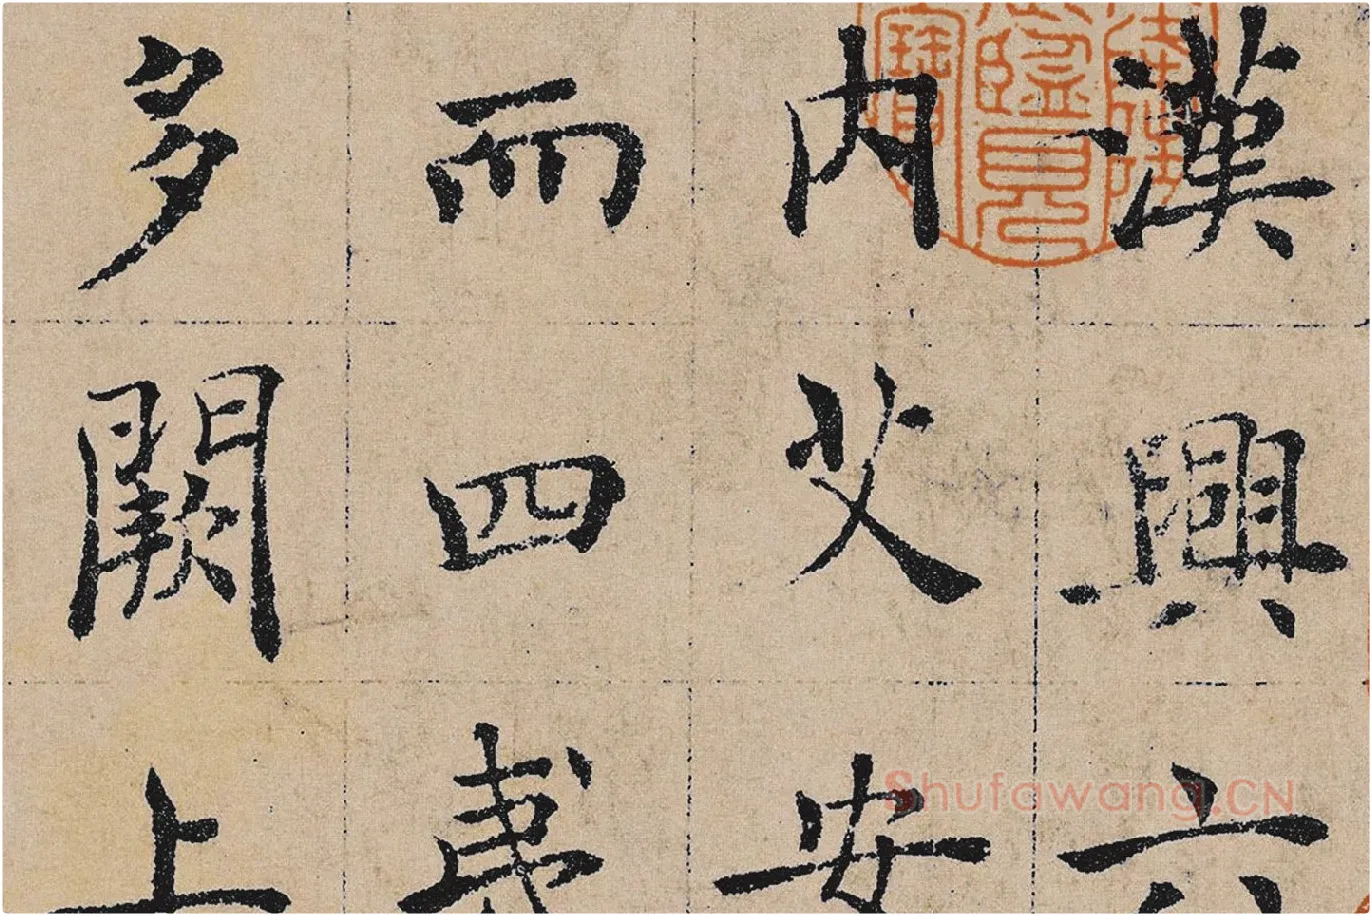 漢興六
内艾安
而四夷
多闕上
Shufawang.CN